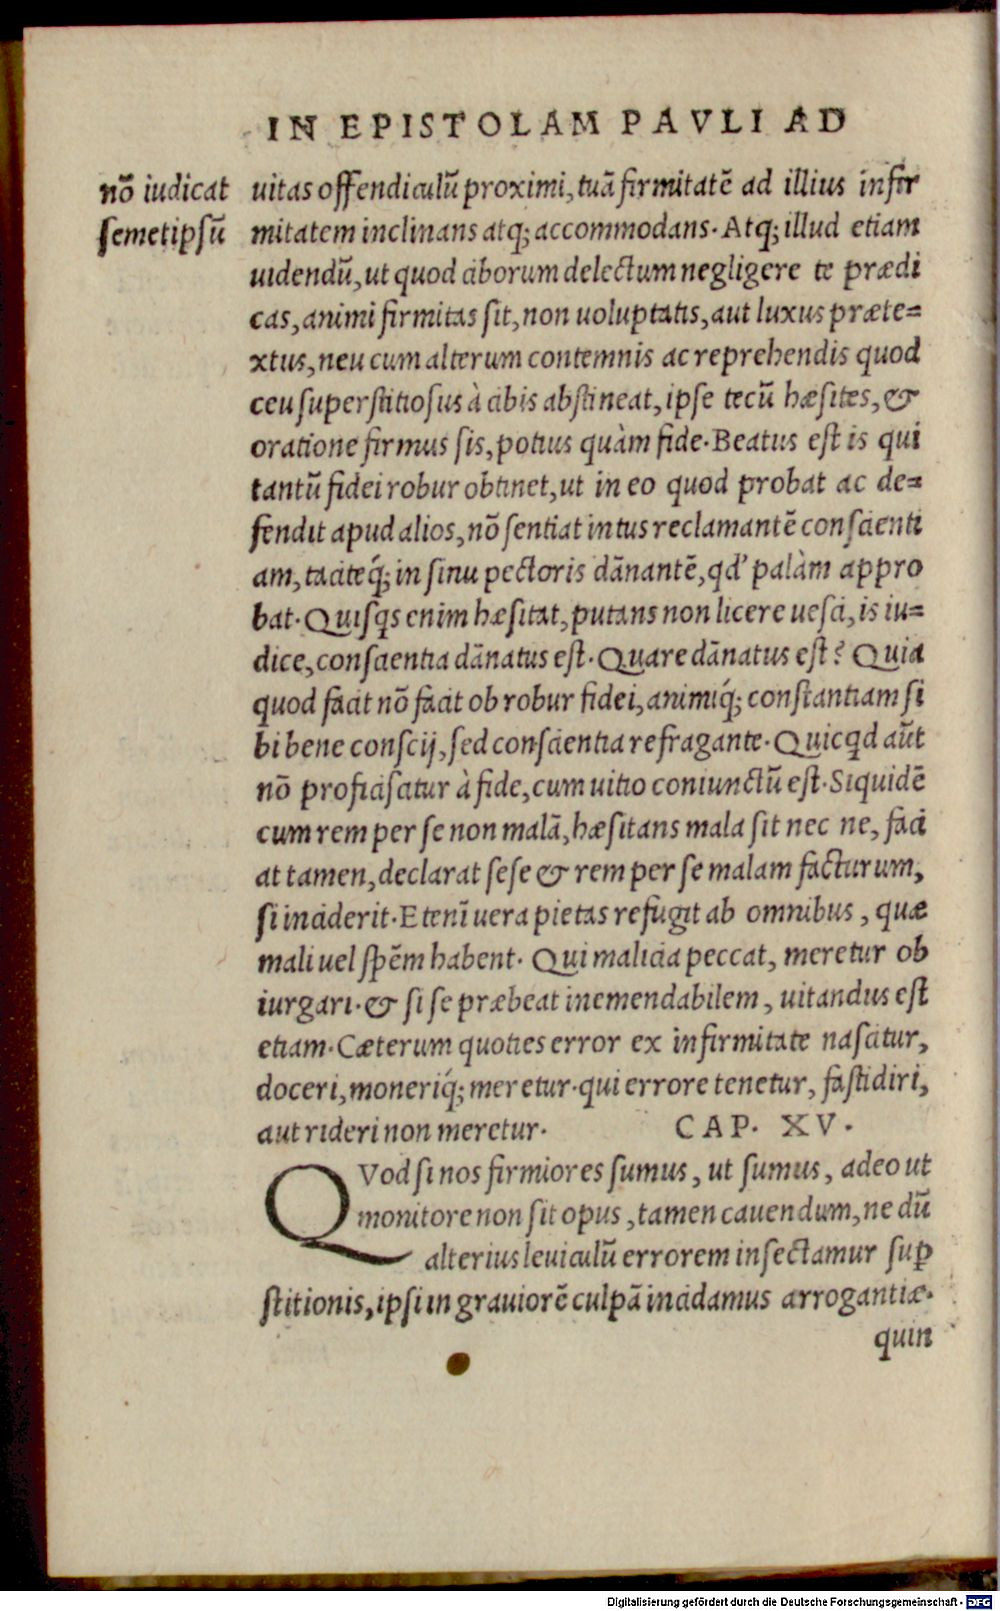 IN EPISTOLAM PAVLI AD
nõ iudicat
ſemetipſũ
uitas offendiculũ proximi, tuã firmitatẽ ad illius infir
mitatem inclinans atq; accommodans. Atq; illud etiam
uidendũ, ut quod ciborum delectum negligere te prædi
cas, animi firmitas ſit, non uoluptatis, aut luxus præte=
xtus, neu cum alterum contemnis ac reprehendis quod
ceu ſuperſtitioſus à cibis abſtineat, ipſe tecũ hæſites, &
oratione firmus ſis, potius quàm fide. Beatus eſt is qui
tantũ fidei robur obtinet, ut in eo quod probat ac de=
fendit apud alios, nõ ſentiat intus reclamantẽ conſcienti
am, taciteq́; in ſinu pectoris dãnantẽ, qd’ palàm appro
bat. Quiſqs enim hæſitat, putans non licere ueſci, is iu=
dice, conſcientia dãnatus eſt. Quare dãnatus eſt? Quia
quod facit nõ facit ob robur fidei, animiq́; conſtantiam ſi
bi bene conſcij, ſed conſcientia refragante. Quicqd aũt
nõ proficiſcatur à fide, cum uitio coniunctũ eſt. Siquidẽ
cum rem per ſe non malã, hæſitans mala ſit nec ne, faci
at tamen, declarat ſeſe & rem per ſe malam facturum,
ſi inciderit. Etenĩ uera pietas refugit ab omnibus, quæ
mali uel ſpẽm habent. Qui malicia peccat, meretur ob
iurgari. & ſi ſe præbeat inemendabilem, uitandus eſt
etiam. Cæterum quoties error ex infirmitate naſcitur,
doceri, moneriq́; meretur. qui errore tenetur, faſtidiri,
aut rideri non meretur. CAP. XV.
QVod ſi nos firmiores ſumus, ut ſumus, adeo ut
monitore non ſit opus, tamen cauendum, ne dũ
alterius leuiculũ errorem inſectamur suꝑ
ſtitionis, ipſi in grauiorẽ culpã incidamus arrogantiæ.
quin
Digitalisierung gefördert durch die Deutsche Forschungsgemeinschaft - DFG